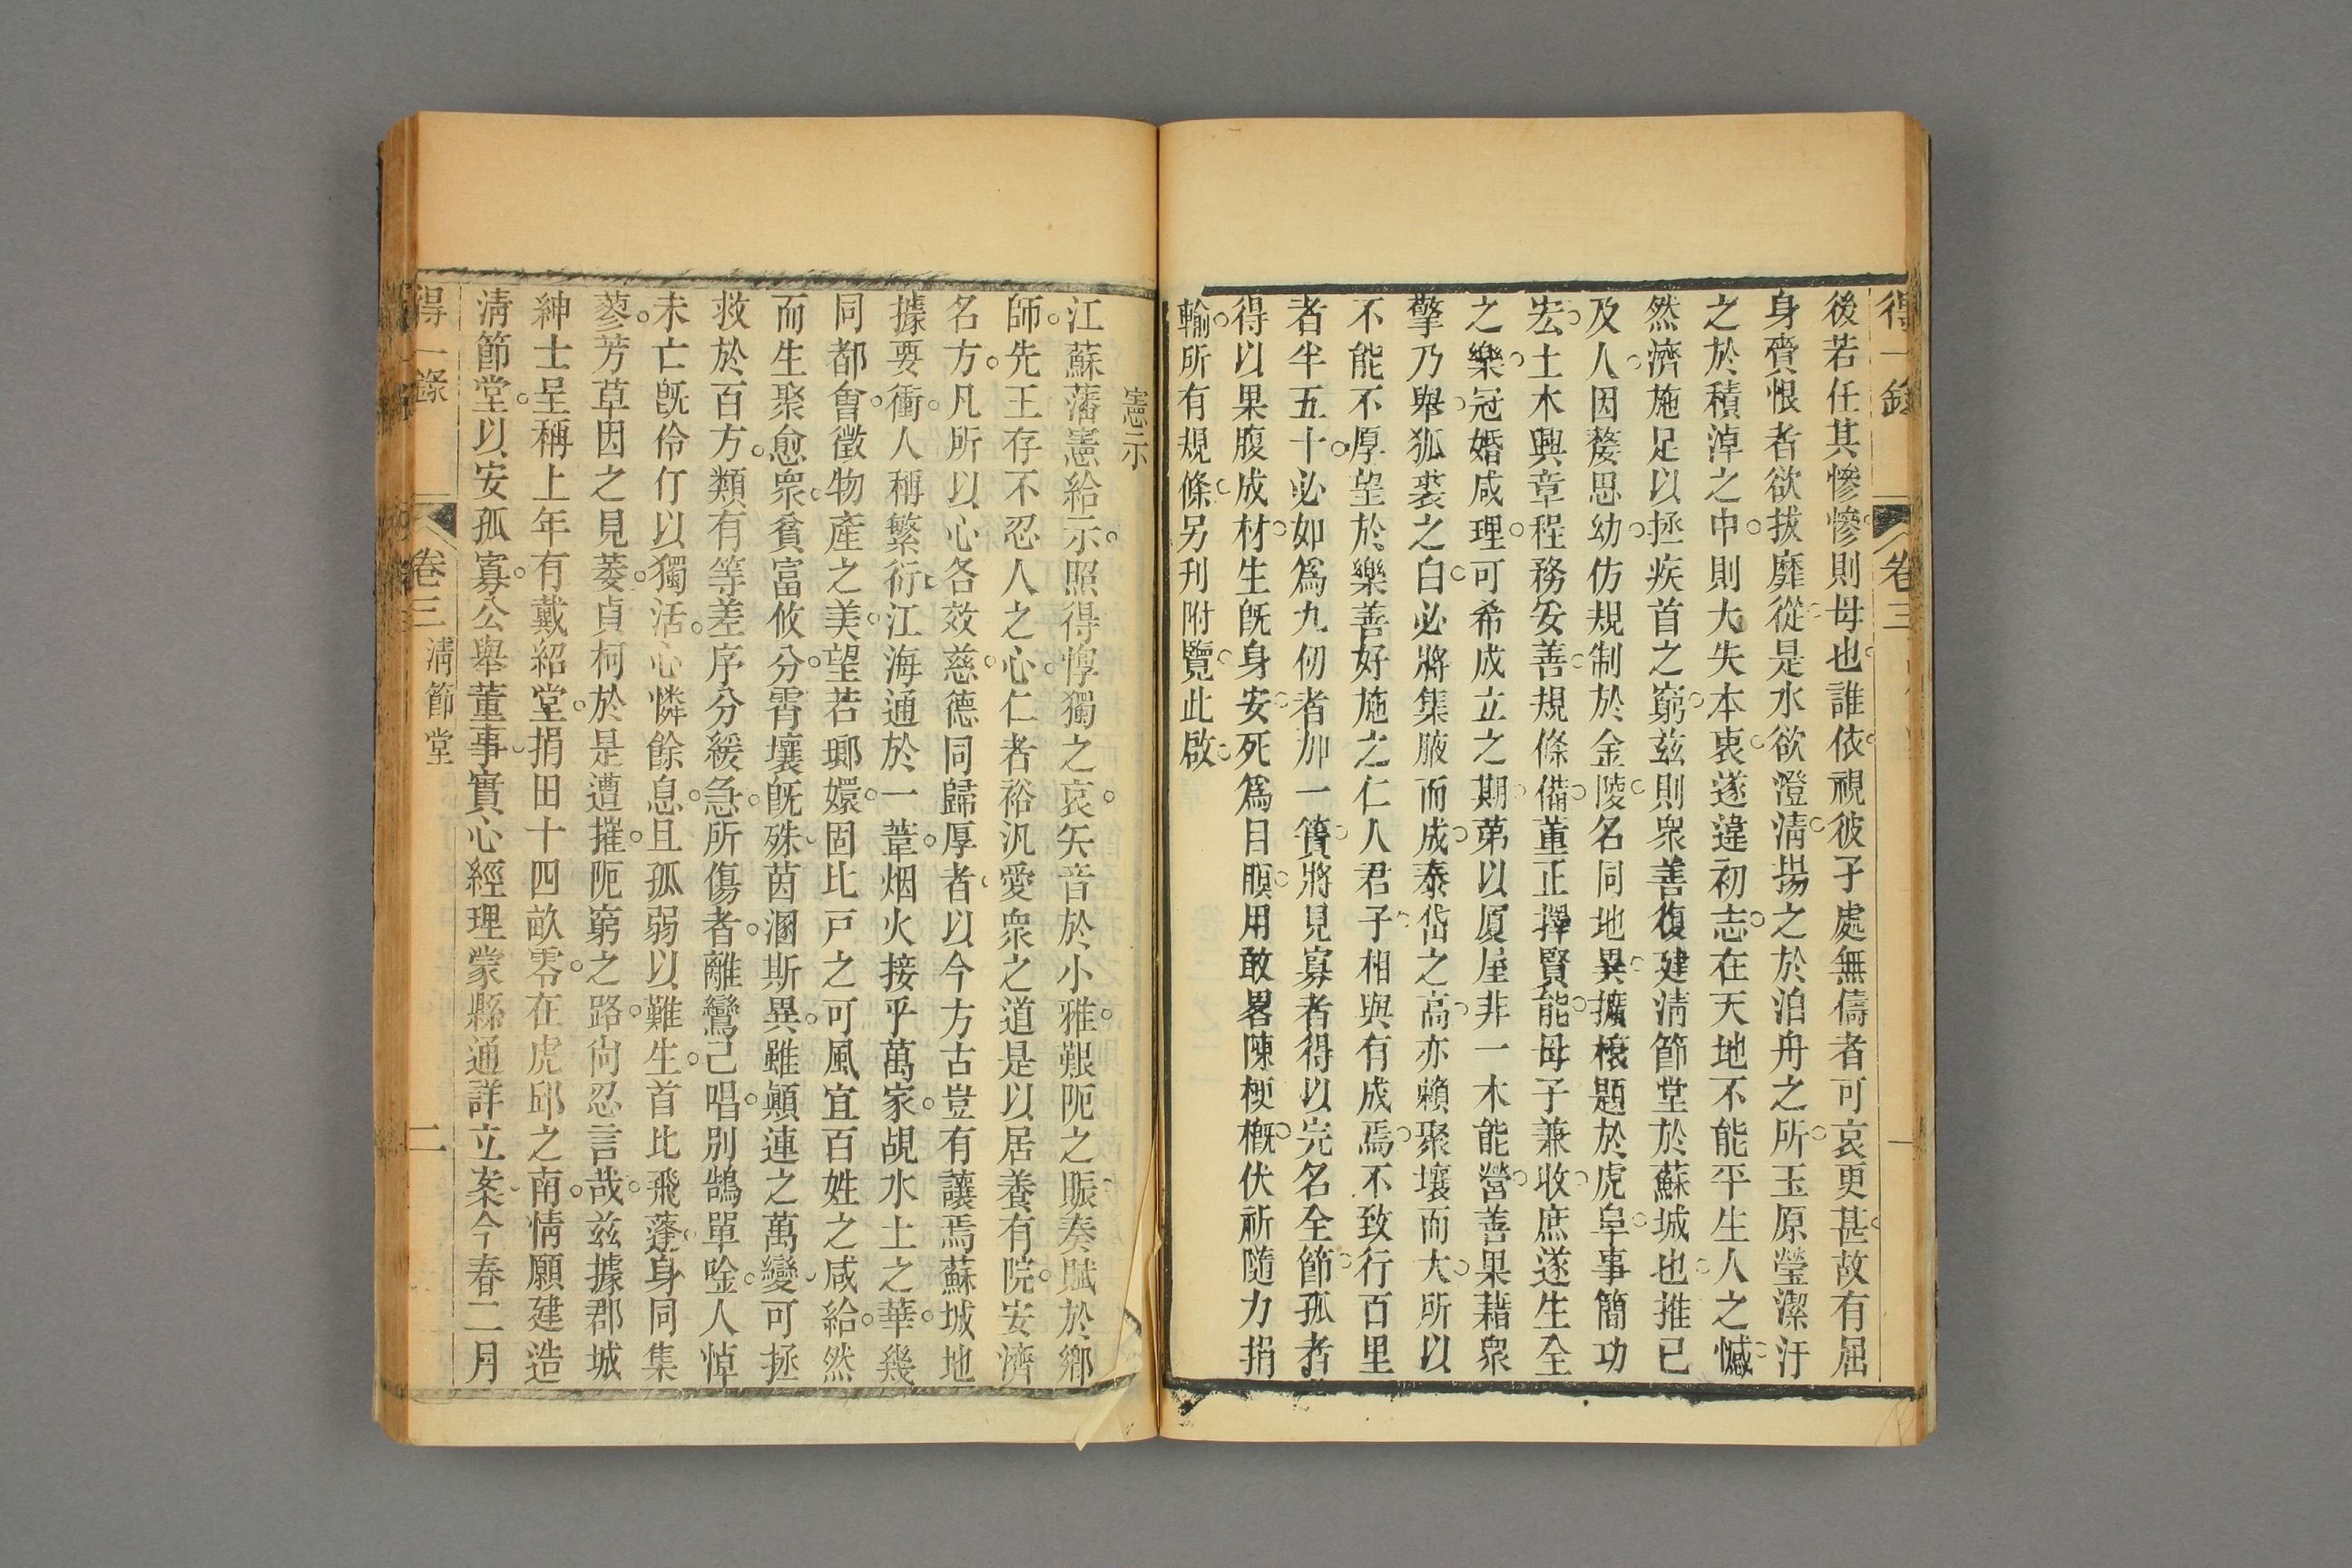 得一錄
卷三
一
後若任其慘慘則母也誰依視彼子處無儔者可哀更甚故有屈
身賫恨者欲拔靡從是水欲澄淸揚之於泊舟之所玉原瑩潔汙
之於積淖之中則大失本衷遂違初志在天地不能平生人之憾
然濟施足以拯疾首之窮茲則衆善復建淸節堂於蘇城也推己
及人因嫠思幼仿規制於金陵名同地異擴榱題於虎阜事簡功
宏土木興章程務妥善規條備董正擇賢能母子兼收庶遂生全
之樂冠婚咸理可希成立之期苐以厦屋非一木能營善果藉衆
擎乃舉狐裘之白必將集腋而成泰岱之高亦賴聚壤而大所以
不能不厚望於樂善好施之仁人君子相與有成焉不致行百里
者半五十必如爲九仞者加一簣將見寡者得以完名全節孤者
得以果腹成材生旣身安死爲目瞑用敢畧陳梗槪伏祈隨力捐
輸所有規條另刊附覽此啟
憲示
江蘇藩憲給示照得惸獨之哀矢音於小雅艱阨之賑奏賦於鄉
師先王存不忍人之心仁者裕汎愛衆之道是以居養有院安濟
名方凡所以心各效慈德同歸厚者以今方古豈有讓焉蘇城地
據要衝人稱繁衍江海通於一葦烟火接乎萬家覘水土之華幾
同都會徵物產之美望若瑯嬛固比戸之可風宜百姓之咸給然
而生聚愈衆貧富攸分霄壤旣殊茵溷斯異雖顚連之萬變可拯
救於百方類有等差序分緩急所傷者離鸞己唱別鵠單唫人悼
未亡旣伶仃以獨活心憐餘息且孤弱以難生首比飛蓬身同集
蓼芳草因之見萎貞柯於是遭摧阨窮之路尙忍言哉兹據郡城
紳士呈稱上年有戴紹堂捐田十四畝零在虎邱之南情願建造
淸節堂以安孤寡公舉董事實心經理蒙縣通詳立案今春二月
得一錄
卷三
淸節堂
二